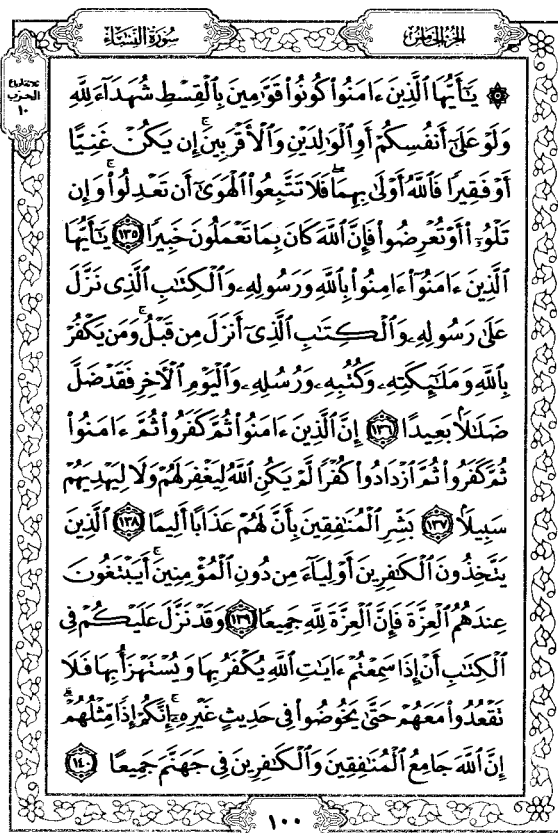 الجزء الخامس
سورة النساء
ثلاثة أرباع
الحزب
١٠
۞ يَٰٓأَيُّهَا ٱلَّذِينَ ءَامَنُوا۟ كُونُوا۟ قَوَّٰمِينَ بِٱلْقِسْطِ شُهَدَآءَ لِلَّهِ
وَلَوْ عَلَىٰٓ أَنفُسِكُمْ أَوِ ٱلْوَٰلِدَيْنِ وَٱلْأَقْرَبِينَ ۚ إِن يَكُنْ غَنِيًّا
أَوْ فَقِيرًا فَٱللَّهُ أَوْلَىٰ بِهِمَا ۖ فَلَا تَتَّبِعُوا۟ ٱلْهَوَىٰٓ أَن تَعْدِلُوا۟ ۚ وَإِن
تَلْوُۥٓا۟ أَوْ تُعْرِضُوا۟ فَإِنَّ ٱللَّهَ كَانَ بِمَا تَعْمَلُونَ خَبِيرًا ١٣٥ يَٰٓأَيُّهَا
ٱلَّذِينَ ءَامَنُوٓا۟ ءَامِنُوا۟ بِٱللَّهِ وَرَسُولِهِۦ وَٱلْكِتَٰبِ ٱلَّذِى نَزَّلَ
عَلَىٰ رَسُولِهِۦ وَٱلْكِتَٰبِ ٱلَّذِىٓ أَنزَلَ مِن قَبْلُ ۚ وَمَن يَكْفُرْ
بِٱللَّهِ وَمَلَٰٓئِكَتِهِۦ وَكُتُبِهِۦ وَرُسُلِهِۦ وَٱلْيَوْمِ ٱلْأَخِرِ فَقَدْ ضَلَّ
ضَلَٰلًۢا بَعِيدًا ١٣٦ إِنَّ ٱلَّذِينَ ءَامَنُوا۟ ثُمَّ كَفَرُوا۟ ثُمَّ ءَامَنُوا۟
ثُمَّ كَفَرُوا۟ ثُمَّ ٱزْدَادُوا۟ كُفْرًا لَّمْ يَكُنِ ٱللَّهُ لِيَغْفِرَ لَهُمْ وَلَا لِيَهْدِيَهُمْ
سَبِيلًۢا ١٣٧ بَشِّرِ ٱلْمُنَٰفِقِينَ بِأَنَّ لَهُمْ عَذَابًا أَلِيمًا ١٣٨ ٱلَّذِينَ
يَتَّخِذُونَ ٱلْكَٰفِرِينَ أَوْلِيَآءَ مِن دُونِ ٱلْمُؤْمِنِينَ ۚ أَيَبْتَغُونَ
عِندَهُمُ ٱلْعِزَّةَ فَإِنَّ ٱلْعِزَّةَ لِلَّهِ جَمِيعًا ١٣٩ وَقَدْ نَزَّلَ عَلَيْكُمْ فِى
ٱلْكِتَٰبِ أَنْ إِذَا سَمِعْتُمْ ءَايَٰتِ ٱللَّهِ يُكْفَرُ بِهَا وَيُسْتَهْزَأُ بِهَا فَلَا
تَقْعُدُوا۟ مَعَهُمْ حَتَّىٰ يَخُوضُوا۟ فِى حَدِيثٍ غَيْرِهِۦٓ ۚ إِنَّكُمْ إِذًا مِّثْلُهُمْ ۗ
إِنَّ ٱللَّهَ جَامِعُ ٱلْمُنَٰفِقِينَ وَٱلْكَٰفِرِينَ فِى جَهَنَّمَ جَمِيعًا ١٤٠
١٠٠